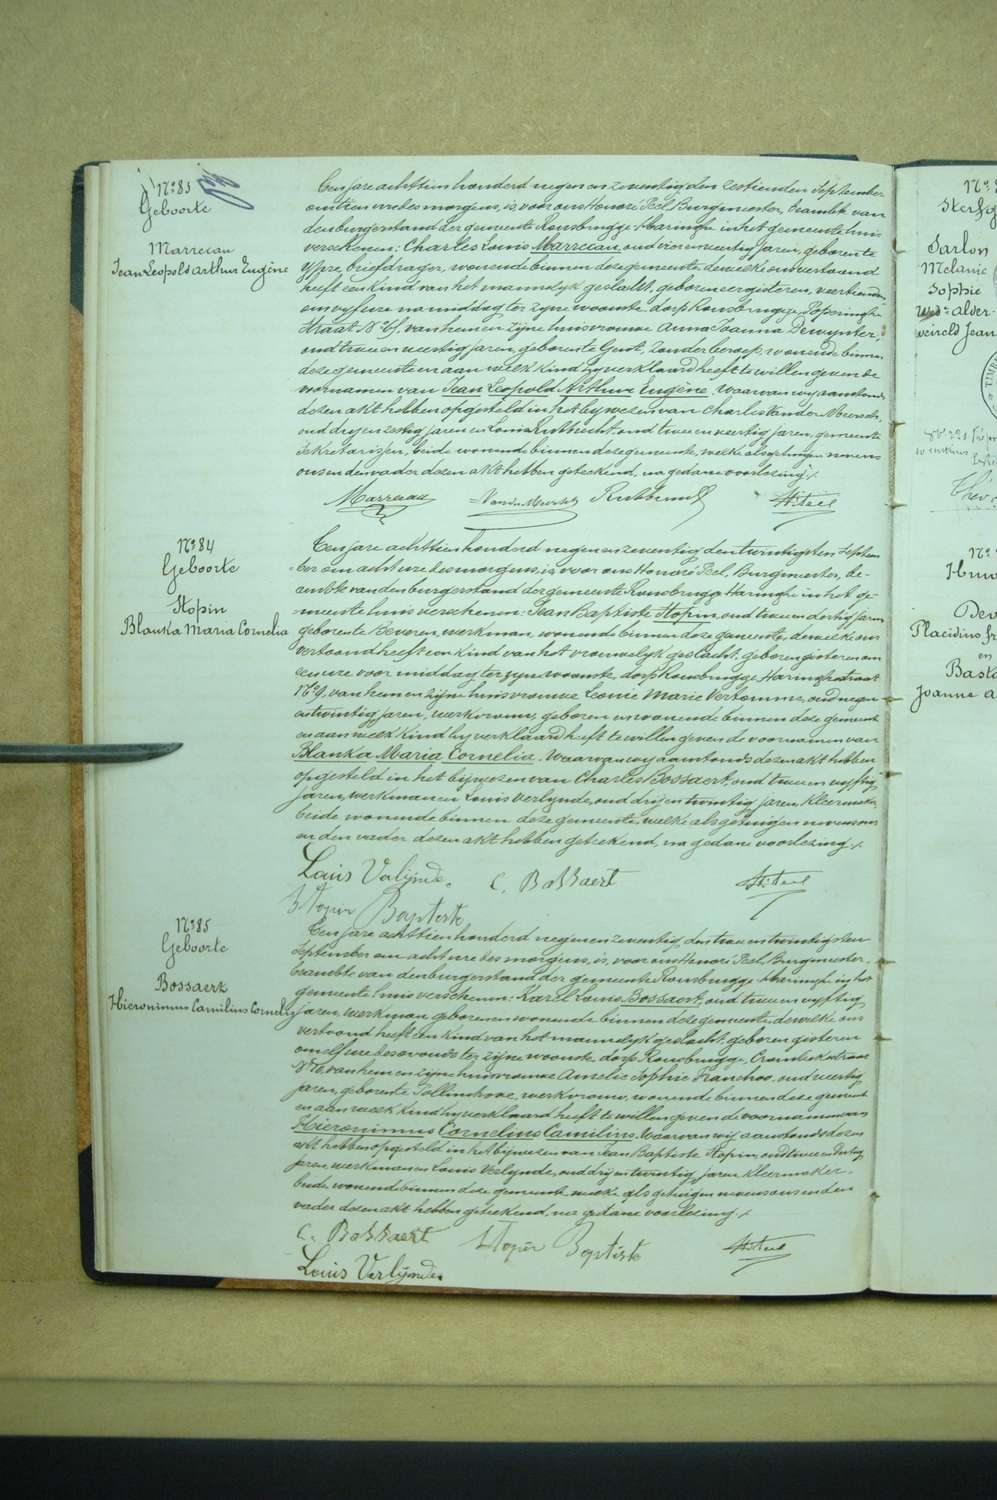 N° 83
Geboorte
Marrecau
Jean Leopold Arthur Eugène
Een jare achttien honderd negen en zeventig, den zestienden September
om tien ure des morgens, is, voor ons Honoré Feel, Burgmeester, beambte van
den burgerstand der gemeente Rousbrugge-Haringhe in het gemeente huis
verschenen: Charles Louis Marrecau, oud vier en veertig jaren, geboren te
Ypre, briefdrager, wonende binnen deze gemeente, dewelke ons vertoond
heeft een kind van het mannelyk geslacht, geboren eergisteren, veertienden,
om vyf ure na middag ter zyne woonste, dorp Rousbrugge, Poperinghe
straat N° , van hem en zyne huisvrouwe Anna Joanna Dewynter,
oud twee en veertig jaren, geboren te Gent, zonder beroep, wonende binnen
deze gemeente en aan welk kind hy verklaard heeft te willen geven de
voornamen van Jean Leopold Arthur Eugène. Waarvan wy aanstonds
dezen akt hebben opgesteld in het bywezen van Charles Vander Meersch,
oud dry en zestig jaren en Louis Rubbrecht, oud twee en veertig jaren, gemeente
sekretarissen, beide wonende binnen deze gemeente, welke als getuigen nevens
ons en den vader dezen akt hebben geteekend, na gedane voorlezing ./.
Marrecau
N° 84
Geboorte
Stopin
Blanka Maria Cornelia
Een jare achttien honderd negen en zeventig den twintigsten Septem
ber om acht ure des morgens, is, voor ons Honoré Feel, Burgmeester, be-
ambte van den burgerstand der gemeente Rousbrugge Haringhe in het ge-
meente huis verschenen: Jean Baptiste Stopin, oud twee en dertig jaren
geboren te Beveren, werkman, wonende binnen deze gemeente, dewelke ons
vertoond heeft een kind van het vrouwelyk geslacht, geboren gisteren om
een ure voor middag ter zyne woonste, dorp Rousbrugge Haringhestraat
N° , van hem en zyne huisvrouwe Leonie Marie Vertomme, oud negen
en twintig jaren, werkvrouw, geboren en wonende binnen deze gemeente
en aan welk kind hy verklaard heeft te willen geven de voornamen van
Blanka Maria Cornelia. Waarvan wy aanstonds dezen akt hebben
opgesteld in het bijwezen van Charles Bossaert, oud twee en vyftig
jaren, werkman en Louis Verlynde, oud drij en twintig jaren, kleermaker,
beide wonende binnen deze gemeente, welke als getuigen nevens ons
en den vader dezen akt hebben geteekend, na gedane voorlezing ./.
Louis Verlijnde. C. Bossaert
Stopin Baptiste
N° 85
Geboorte
Bossaert
Hieronimus Camilius Cornelius
Een jare achttien honderd negen en zeventig, den twee en twintigsten
September om acht ure des morgens, is, voor ons Honoré Feel, Burgmeester,
beambte van den burgerstand der gemeente Rousbrugge Haringhe in het
gemeente huis verschenen: Karel Louis Bossaert, oud twee en vyftig
jaren werkman geboren en wonende binnen deze gemeente, dewelke ons
vertoond heeft een kind van het mannelyk geslacht, geboren gisteren
om elf ure des avonds ter zyne woonste dorp Rousbrugge, Crombekestraat
N° , van hem en zyne huisvrouwe Amelie Sophie Franchoo, oud veertig
jaren, geboren te Pollinchove, werkvrouw, wonende binnen deze gemeente
en aan welk kind hy verklaard heeft te willen geven de voornamen van
Hieronimus Cornelius Camilius. Waarvan wij aanstonds dezen
akt hebben opgesteld in het bijwezen van Jean Baptiste Stopin, oud twee en dertig
jaren, werkman en Louis Verlynde, oud drij en twintig jaren kleermaker,
beide wonende binnen deze gemeente, welke als getuigen nevens ons en den
vader dezen akt hebben geteekend, na gedane voorlezing ./.
C. Bossaert Stopin Baptiste
Louis Verlijnde.
Sarlon
Melanie
Sophie